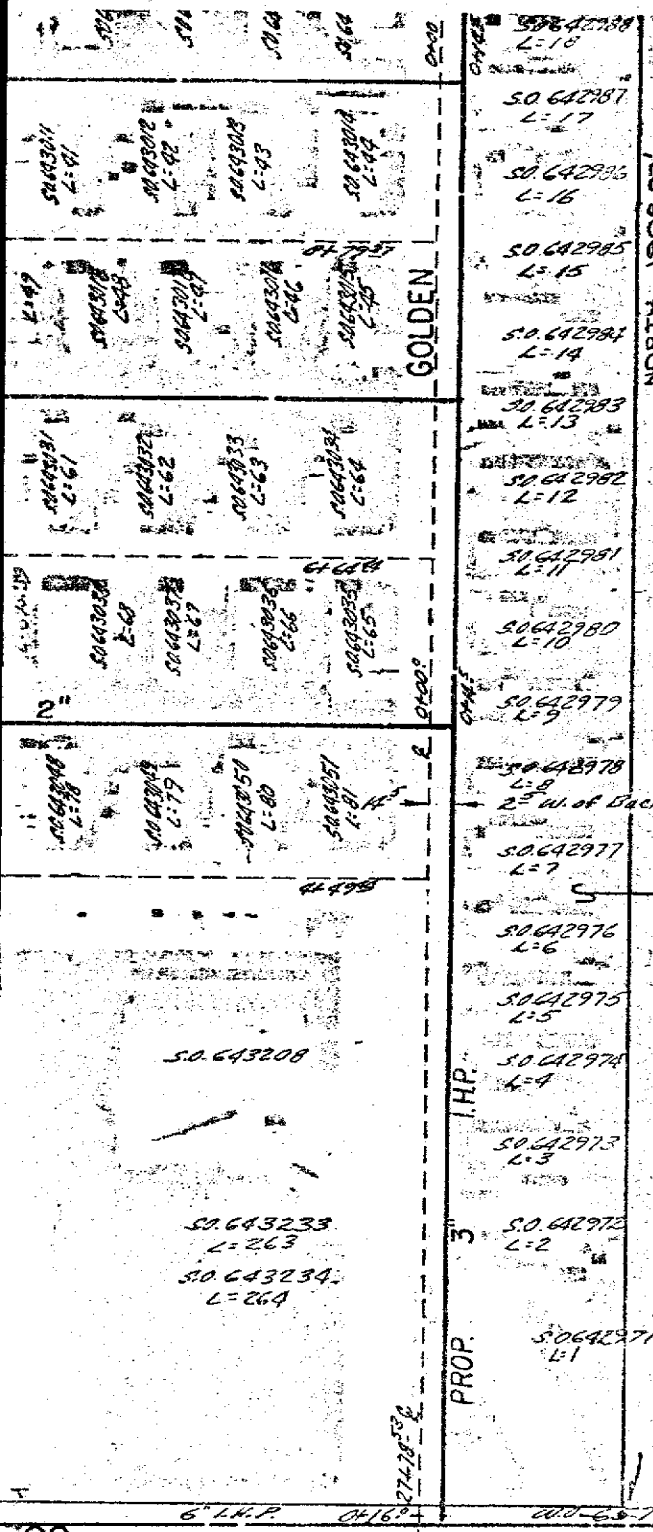 0+00
0+14.5
S.O. 642988
L=18
S.O. 642987
L=17
S.O. 642986
L=16
S.O. 642985
L=15
S.O. 642984
L=14
S.O. 642983
L=13
S.O. 642982
L=12
S.O. 642981
L=11
S.O. 642980
L=10
S.O. 642979
L=9
S.O. 642978
L=8
2.5 W. of Back
S.O. 642977
L=7
S.O. 642976
L=6
S.O. 642975
L=5
S.O. 642974
L=4
S.O. 642973
L=3
S.O. 642972
L=2
S.O. 642971
L=1
NORTH
S.O. 643011
L=41
S.O. 643012
L=42
S.O. 643013
L=43
S.O. 643014
L=44
L=49
S.O. 643018
L=48
S.O. 643017
L=47
S.O. 643016
L=46
S.O. 643015
L=45
GOLDEN
S.O. 643031
L=61
S.O. 643032
L=62
S.O. 643033
L=63
S.O. 643034
L=64
S.O. 643038
L=68
S.O. 643037
L=67
S.O. 643036
L=66
S.O. 643035
L=65
2"
0+00°
0+14.5
S.O. 643048
L=78
S.O. 643049
L=79
S.O. 643050
L=80
S.O. 643051
L=81
14.5
S.O. 643208
S.O. 643233
L=263
S.O. 643234
L=264
PROP. 3" I.H.P.
6" I.H.P.
0+16°